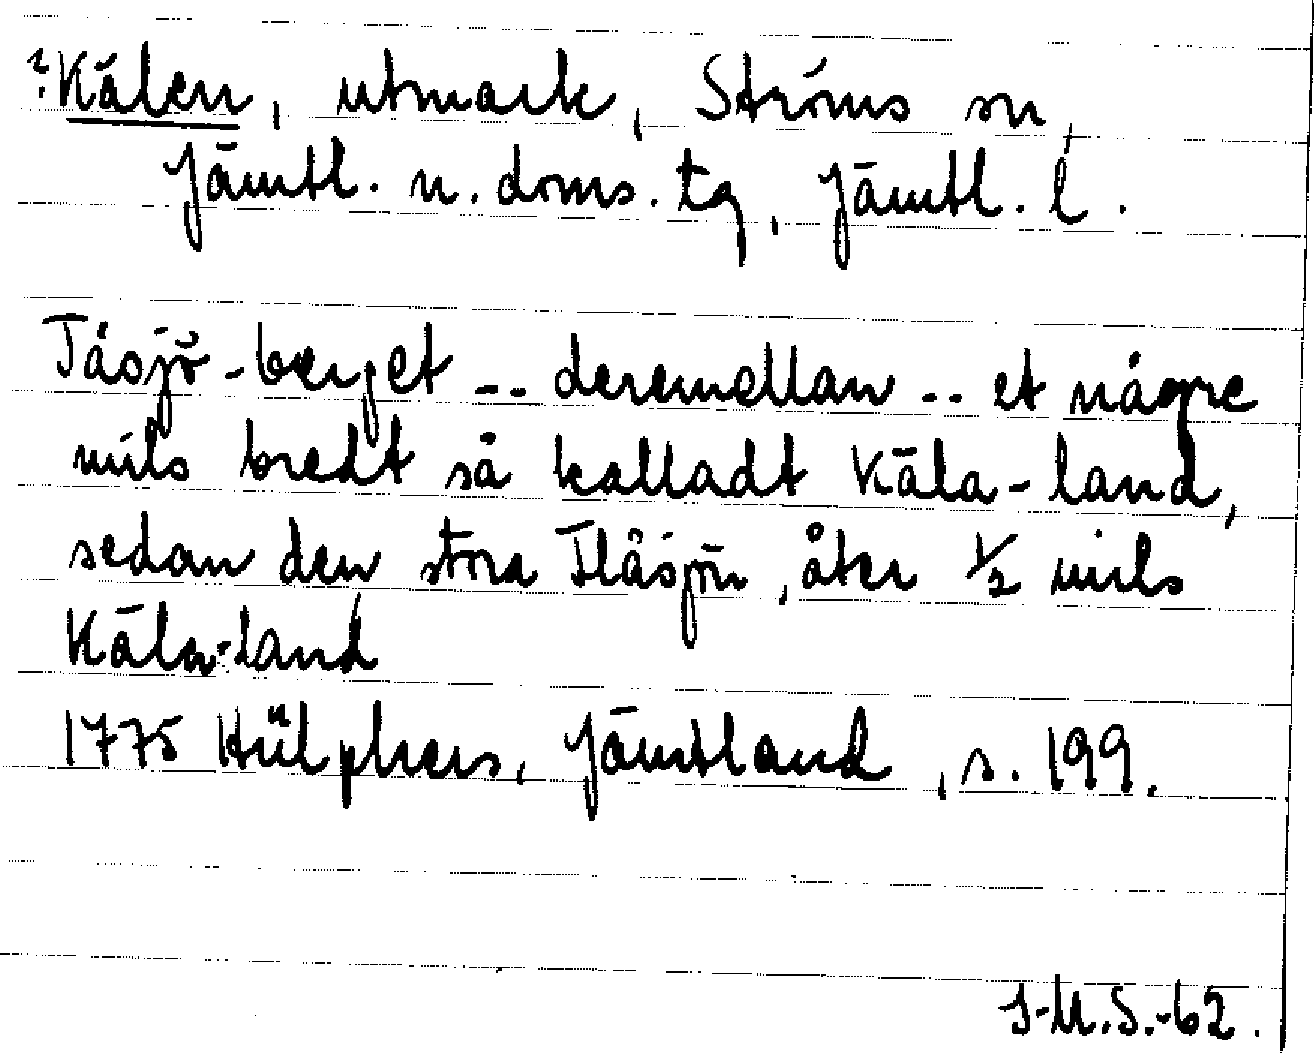 ?Kälen, utmark, Ströms sn,
Jämtl. n. doms. tg, Jämtl. l.
Tåsjö-berget -- deremellan -- et någre
mils bredt så kalladt Käla-land,
sedan den stora Flåsjön, åter 1/2 mils
Käla-land
1775 Hülphers, Jämtland, s. 199.
J-M.S.-62.